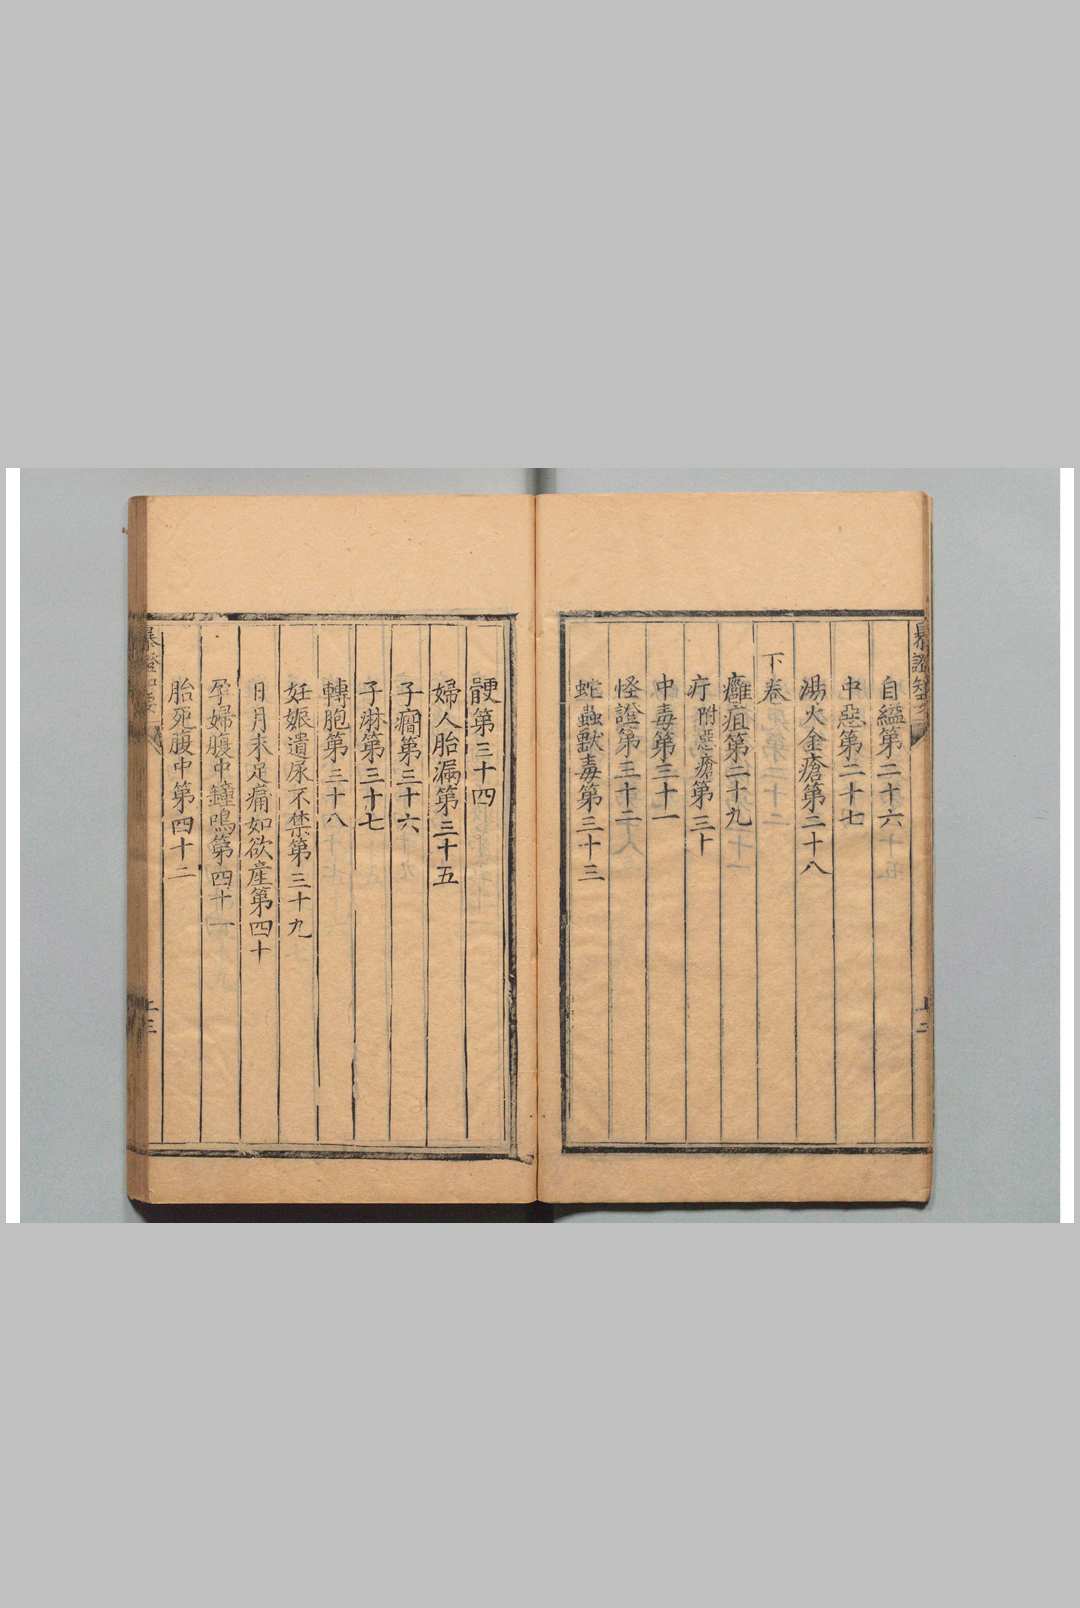 自縊第二十六
中惡第二十七
湯火金瘡第二十八
下卷
癰疽第二十九
疔附惡瘡第三十
中毒第三十一
怪證第三十二
蛇蟲獸毒第三十三
骾第三十四
婦人胎漏第三十五
子癎第三十六
子淋第三十七
轉胞第三十八
妊娠遺尿不禁第三十九
日月未足痛如欲産第四十
孕婦腹中鐘鳴第四十一
胎死腹中第四十二